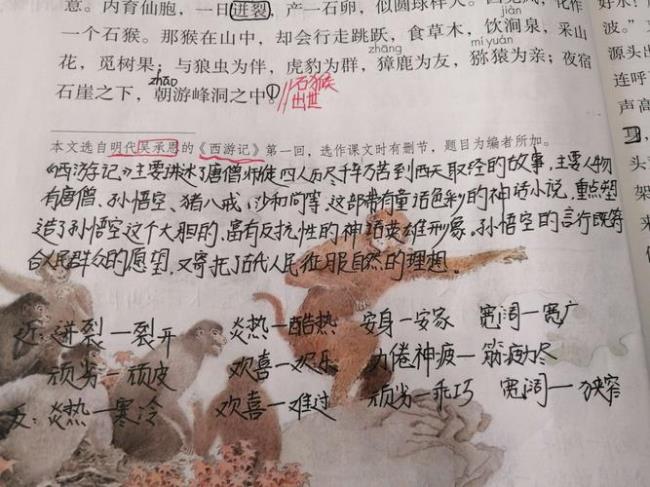 意。内育仙胞，一日迸裂，产一石卵，似圆球样大。
jiàn
一个石猴。那猴在山中，却会行走跳跃，食草木，饮涧泉，采山
zhāng
mí yuán
花，觅树果；与狼虫为伴，虎豹为群，獐鹿为友，猕猿为亲；夜宿
zhāo
石崖之下，朝游峰洞之中。
石猴
出世
本文选自明代吴承恩的《西游记》第一回，选作课文时有删节，题目为编者所加。
《西游记》主要讲述了唐僧师徒四人历尽千辛万苦到西天取经的故事，主要人物
有唐僧、孙悟空、猪八戒、沙和尚等，这部带有童话色彩的神话小说，重点塑
造了孙悟空这个大胆的，富有反抗性的神话英雄形象。孙悟空的言行既符
合人民群众的愿望，又寄托了古代人民征服自然的理想。
近：迸裂—裂开 炎热—酷热 安身—安家 宽阔—宽广
顽劣—顽皮 欢喜—欢乐 力倦神疲—筋疲力尽
反：炎热—寒冷 欢喜—难过 顽劣—乖巧 宽阔—狭窄
波。”
源头出
连呼
声高
头
架
来